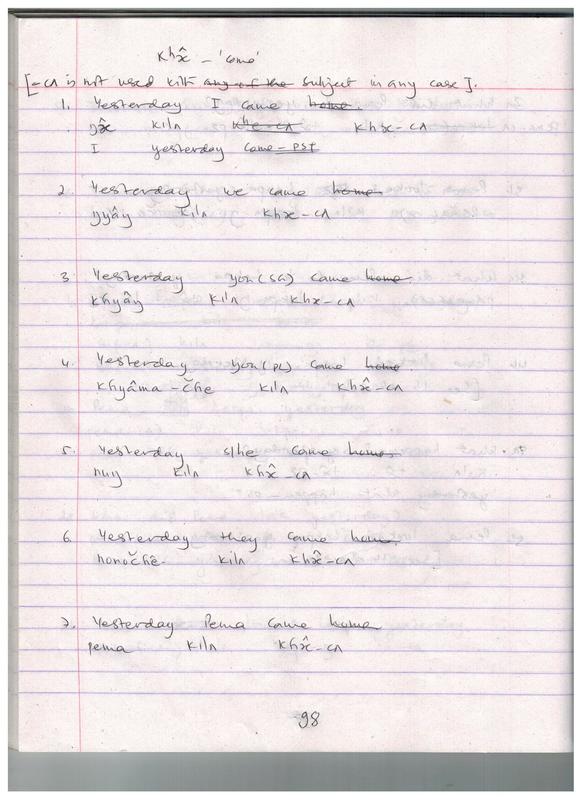 Khx̂ - 'come'
[-cʌ is not used with any of the subject in any case].
1. Yesterday I came home
ŋx̂ kilʌ khe-cʌ khx-cʌ
I yesterday came-PST
2. Yesterday we came home
ŋyây kilʌ khx-cʌ
3. Yesterday you(SG) came home
khyây kilʌ khx-cʌ
4. Yesterday you(PL) came home
khyâma-čhe kilʌ khx̂-cʌ
5. Yesterday s/he came home
huŋ kilʌ khx̂-cʌ
6. Yesterday they came home
honočhê kilʌ khx̂-cʌ
7. Yesterday Pema came home
pema kilʌ khx̂-cʌ
98